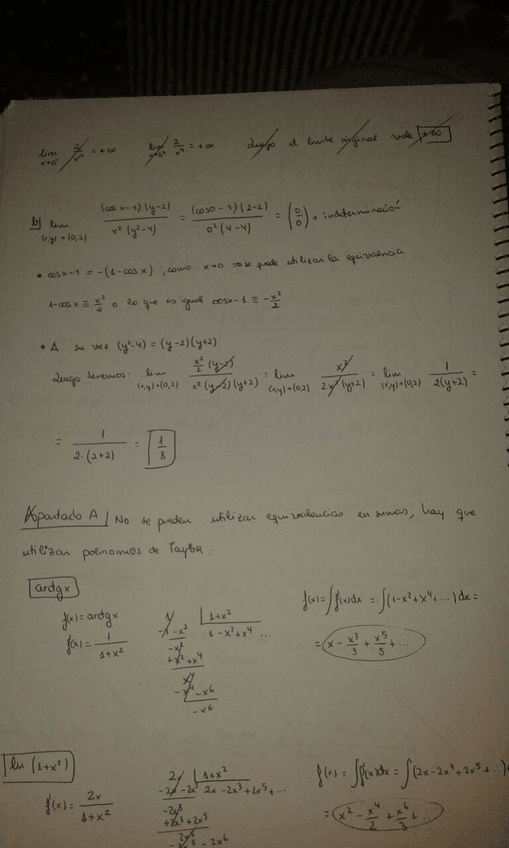 lim x→0⁻ 2/x⁴ = +∞ lim x→0⁺ 2/x⁴ = +∞ Luego el límite original vale +∞
b) lim (x,y)→(0,2) (cos x-1)(y-2) / x²(y²-4) = (cos0-1)(2-2) / 0²(4-4) = (0/0) → indeterminación
• cosx-1 = -(1-cosx); como x→0 ⇒ se puede utilizar la equivalencia
1-cosx ≡ x²/2 o lo que es igual cosx-1 ≡ -x²/2
• A su vez (y²-4) = (y-2)(y+2)
Luego tenemos: lim (x,y)→(0,2) x²/2 (y-2) / x²(y-2)(y+2) = lim (x,y)→(0,2) x² / 2x²(y+2) = lim (x,y)→(0,2) 1 / 2(y+2) =
= 1 / 2·(2+2) = 1/8
Apartado A / No se pueden utilizar equivalencias en sumas, hay que
utilizar polinomios de Taylor.
arctgx
f(x) = arctgx
f'(x) = 1 / 1+x²
1 | 1+x²
-1-x² 1-x²+x⁴ ...
-x²
+x²+x⁴
x⁴
-x⁴-x⁶
-x⁶
f(x) = ∫f'(x)dx = ∫(1-x²+x⁴+...)dx =
= x - x³/3 + x⁵/5 + ...
ln (1+x²)
f'(x) = 2x / 1+x²
2x | 1+x²
-2x-2x³ 2x-2x³+2x⁵+...
-2x³
+2x³+2x⁵
2x⁵
-2x⁵-2x⁶
f(x) = ∫f'(x)dx = ∫(2x-2x³+2x⁵+...)
= x² - x⁴/2 + x⁶/3 + ...